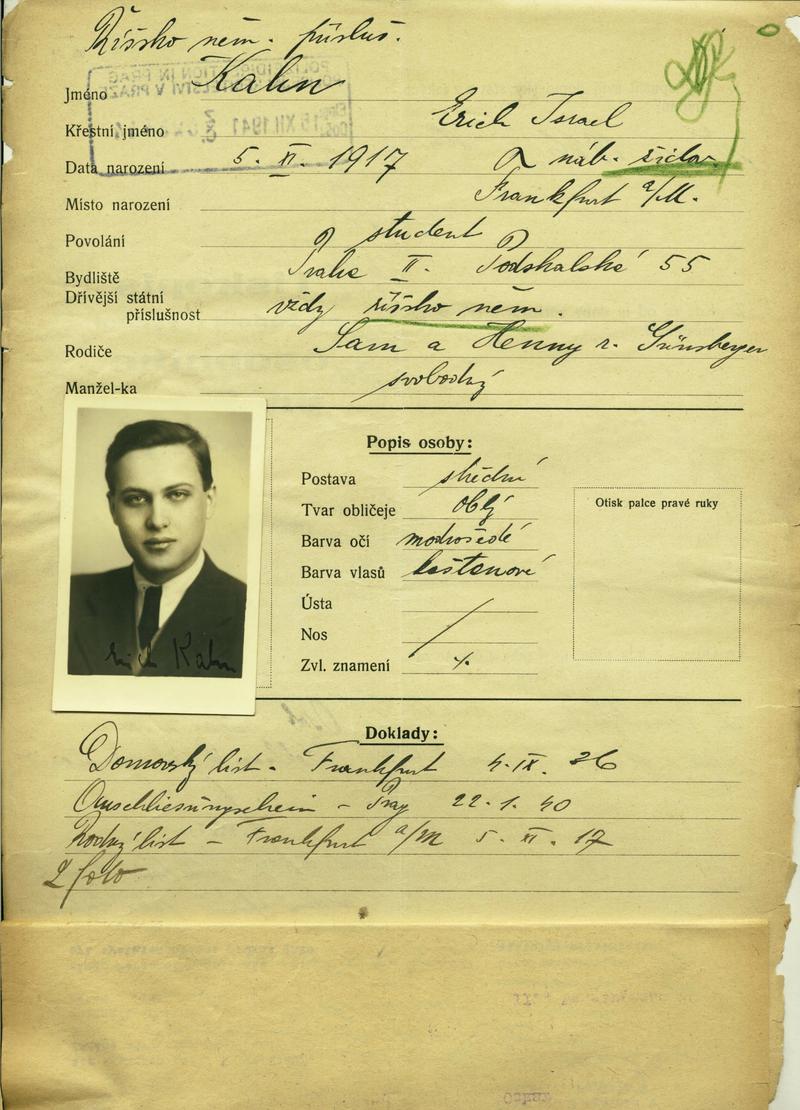 Říšsko něm. přísluš.
Jméno Kahn
Křestní jméno Erich Israel
Data narození 5. XI. 1917 náb. židov.
Místo narození Frankfurt a/M.
Povolání student
Bydliště Praha II. Podskalská 55
Dřívější státní
příslušnost vždy říšsko něm.
Rodiče Sam a Henny r. Günsberger
Manžel-ka svobodný
Popis osoby:
Postava střední
Tvar obličeje oblý
Otisk palce pravé ruky
Barva očí modrošedé
Barva vlasů kaštanové
Ústa /
Nos
Zvl. znamení %
Erich Kahn
Doklady:
Domovský list - Frankfurt 4. IX. 36
- Prag 22. 1. 40
Rodný list - Frankfurt a/M 5. XI. 17
2 foto